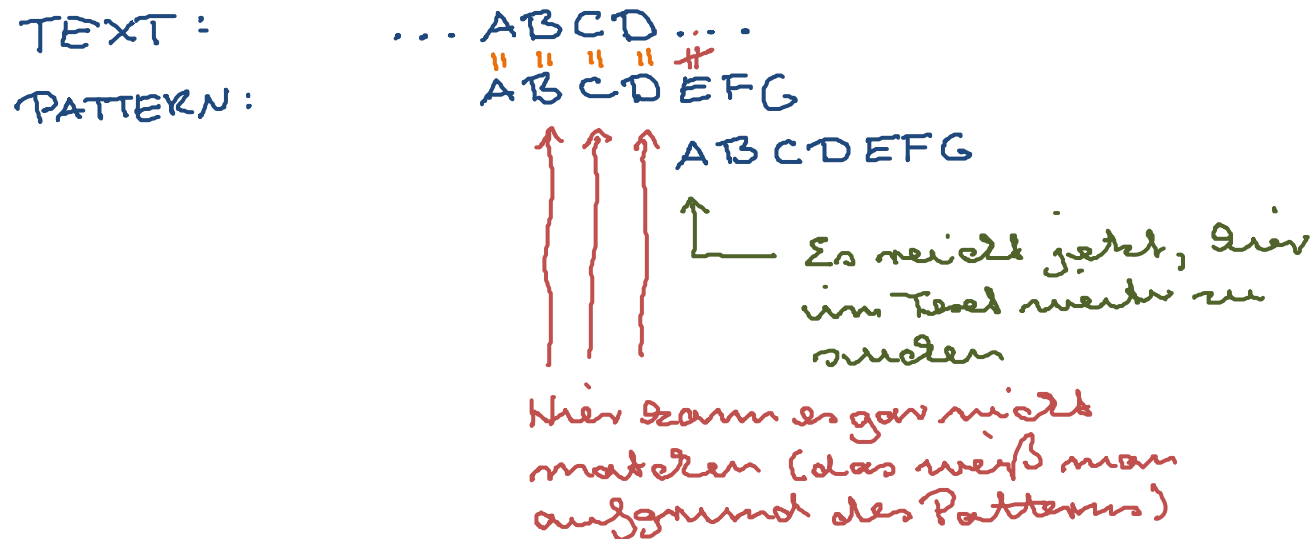 TEXT: ... ABCD ....
PATTERN: ABCDEFG
ABCDEFG
Es reicht jetzt, hier
im Text weiter zu
suchen
Hier kann es gar nicht
matchen (das weiß man
aufgrund des Patterns)